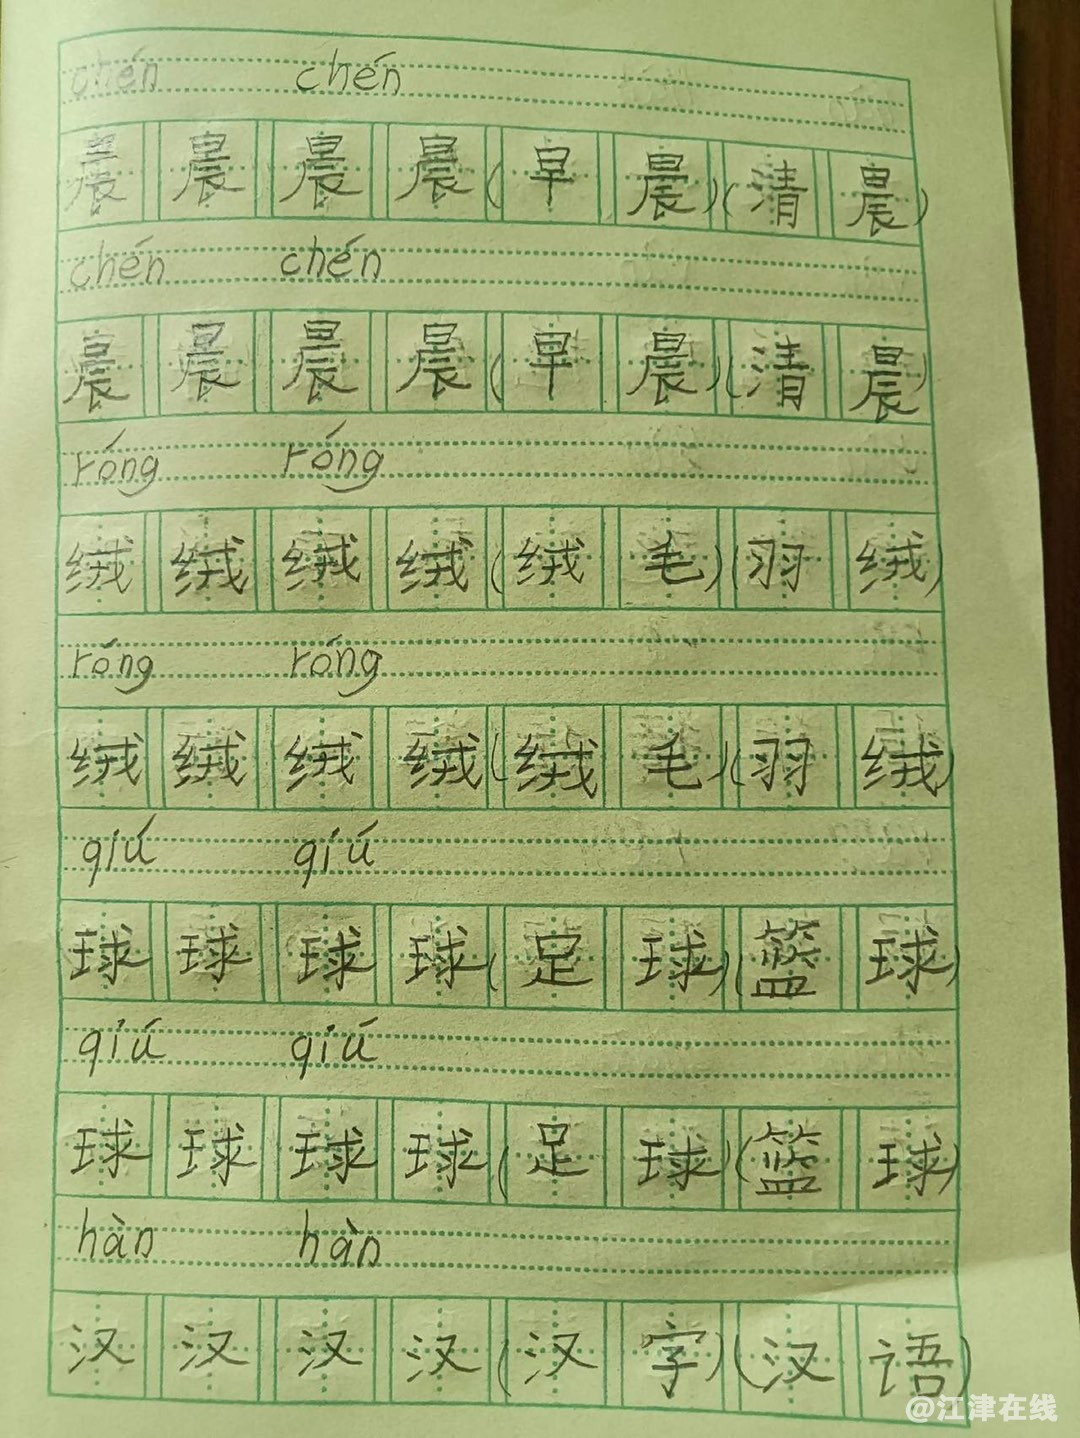 chén chén
晨晨晨晨(早晨)(清晨)
chén chén
晨晨晨晨(早晨)(清晨)
róng róng
绒绒绒绒(绒毛)(羽绒)
róng róng
绒绒绒绒(绒毛)(羽绒)
qiú qiú
球球球球(足球)(篮球)
qiú qiú
球球球球(足球)(篮球)
hàn hàn
汉汉汉汉(汉字)(汉语)
@江津在线